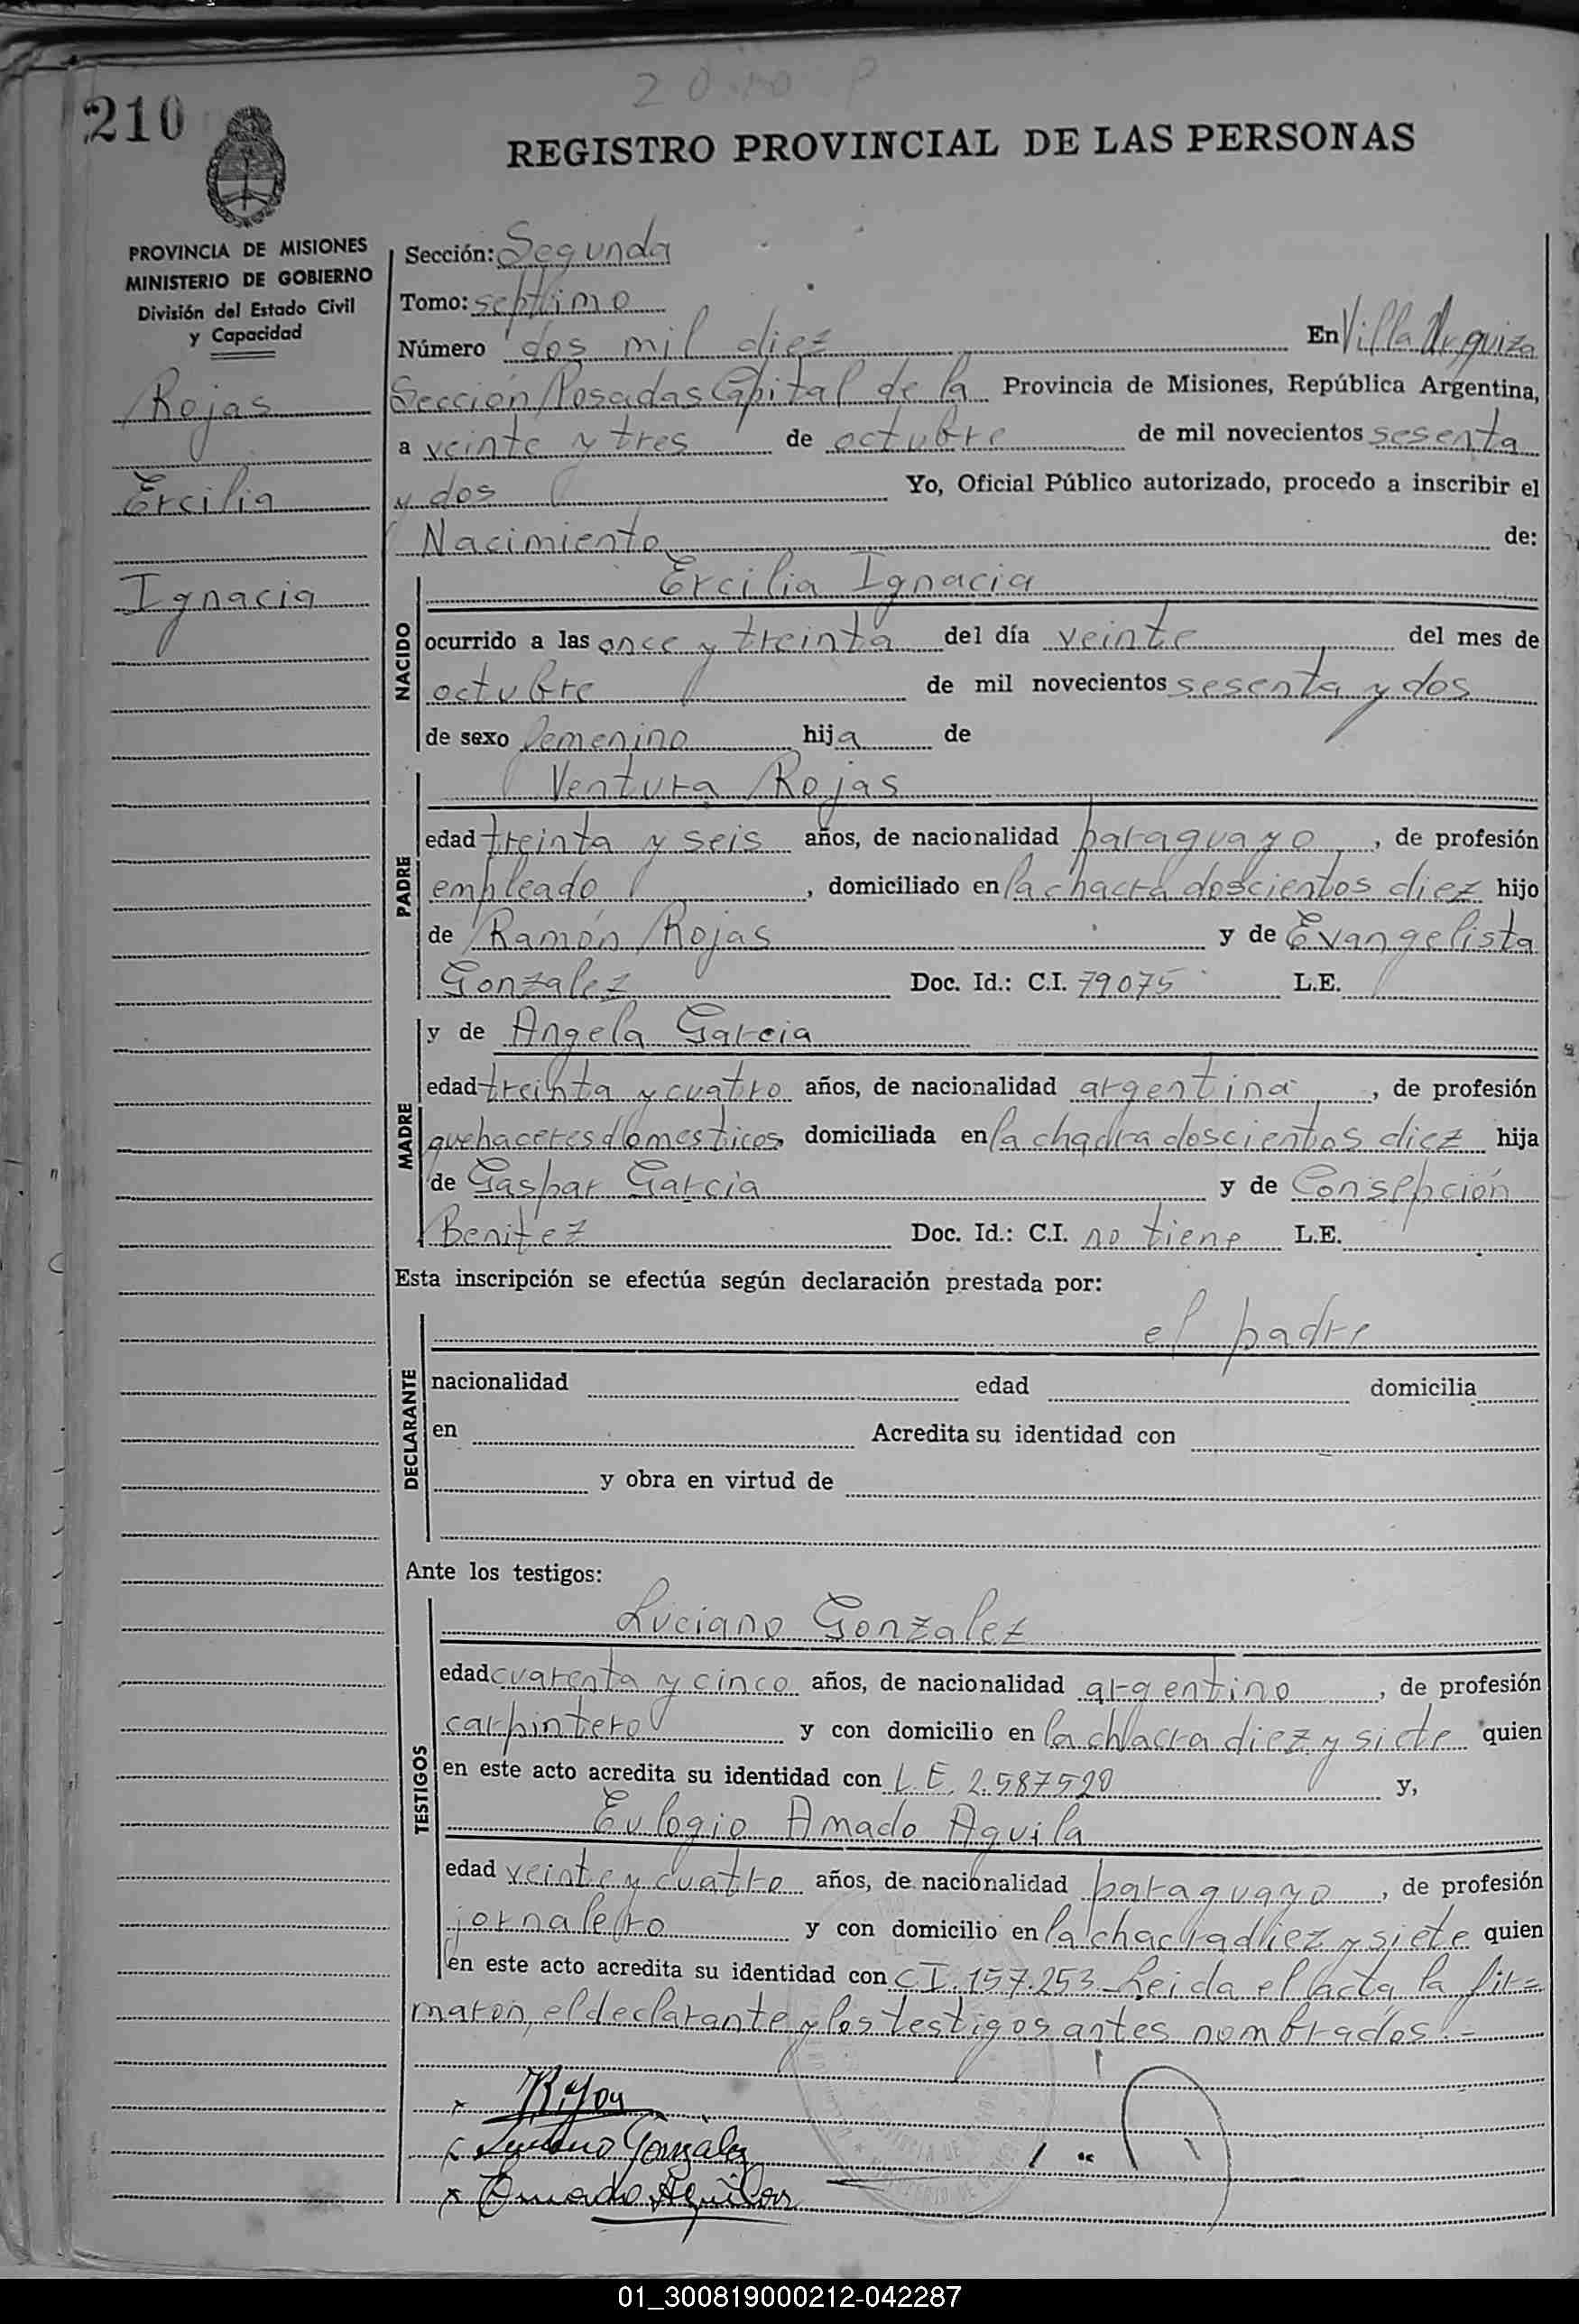 210
REGISTRO PROVINCIAL DE LAS PERSONAS
PROVINCIA DE MISIONES
MINISTERIO DE GOBIERNO
División del Estado Civil
y Capacidad
Rojas
Ercilia
Ignacia
Sección: Segunda
Tomo: septimo
Número dos mil diez En Villa Urquiza
Sección Posadas Capital de la Provincia de Misiones, República Argentina,
a veinte y tres de octubre de mil novecientos sesenta
y dos Yo, Oficial Público autorizado, procedo a inscribir el
Nacimiento de:
NACIDO
Ercilia Ignacia
ocurrido a las once y treinta del día veinte del mes de
octubre de mil novecientos sesenta y dos
de sexo femenino hija de
PADRE
Ventura Rojas
edad treinta y seis años, de nacionalidad paraguayo, de profesión
empleado, domiciliado en la chacra doscientos diez hijo
de Ramón Rojas y de Evangelista
Gonzalez Doc. Id.: C.I. 79075 L.E.
MADRE
y de Angela Garcia
edad treinta y cuatro años, de nacionalidad argentina, de profesión
quehaceres domesticos domiciliada en la chacra doscientos diez hija
de Gaspar Garcia y de Consepción
Benitez Doc. Id.: C.I. no tiene L.E.
Esta inscripción se efectúa según declaración prestada por:
DECLARANTE
el padre
nacionalidad edad domicilia
en Acredita su identidad con
y obra en virtud de
Ante los testigos:
TESTIGOS
Luciano Gonzalez
edad cuarenta y cinco años, de nacionalidad argentino, de profesión
carpintero y con domicilio en la chacra diez y siete quien
en este acto acredita su identidad con L.E. 2.587520 y,
Eulogio Amado Aquila
edad veinte y cuatro años, de nacionalidad paraguayo, de profesión
jornalero y con domicilio en la chacra diez y siete quien
en este acto acredita su identidad con C.I. 157.253 Leida el acta la fir=
maron, el declarante y los testigos antes nombrados.-
Luciano Gonzalez
Amado Aquilar
01_300819000212-042287